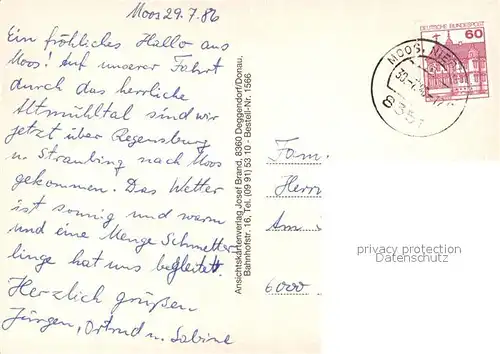 Moos 29.7.86
Ein fröhliches Hallo aus
Moos! Auf unserer Fahrt
durch das herrliche
Altmühltal sind wir
jetzt über Regensburg
u. Straubing nach Moos
gekommen. Das Wetter
ist sonnig und warm
und eine Menge Schmetter
linge hat uns begleitet.
Herzlich grüßen
Jürgen, Ortrud u. Sabine
Ansichtskartenverlag Josef Brand, 8360 Deggendorf/Donau,
Bahnhofstr. 16, Tel. (09 91) 53 10 - Bestell-Nr. 1566
DEUTSCHE BUNDESPOST
60
MOOS, NIE
8351
Fam.
Herrn
Am
6000
privacy protection
Datenschutz